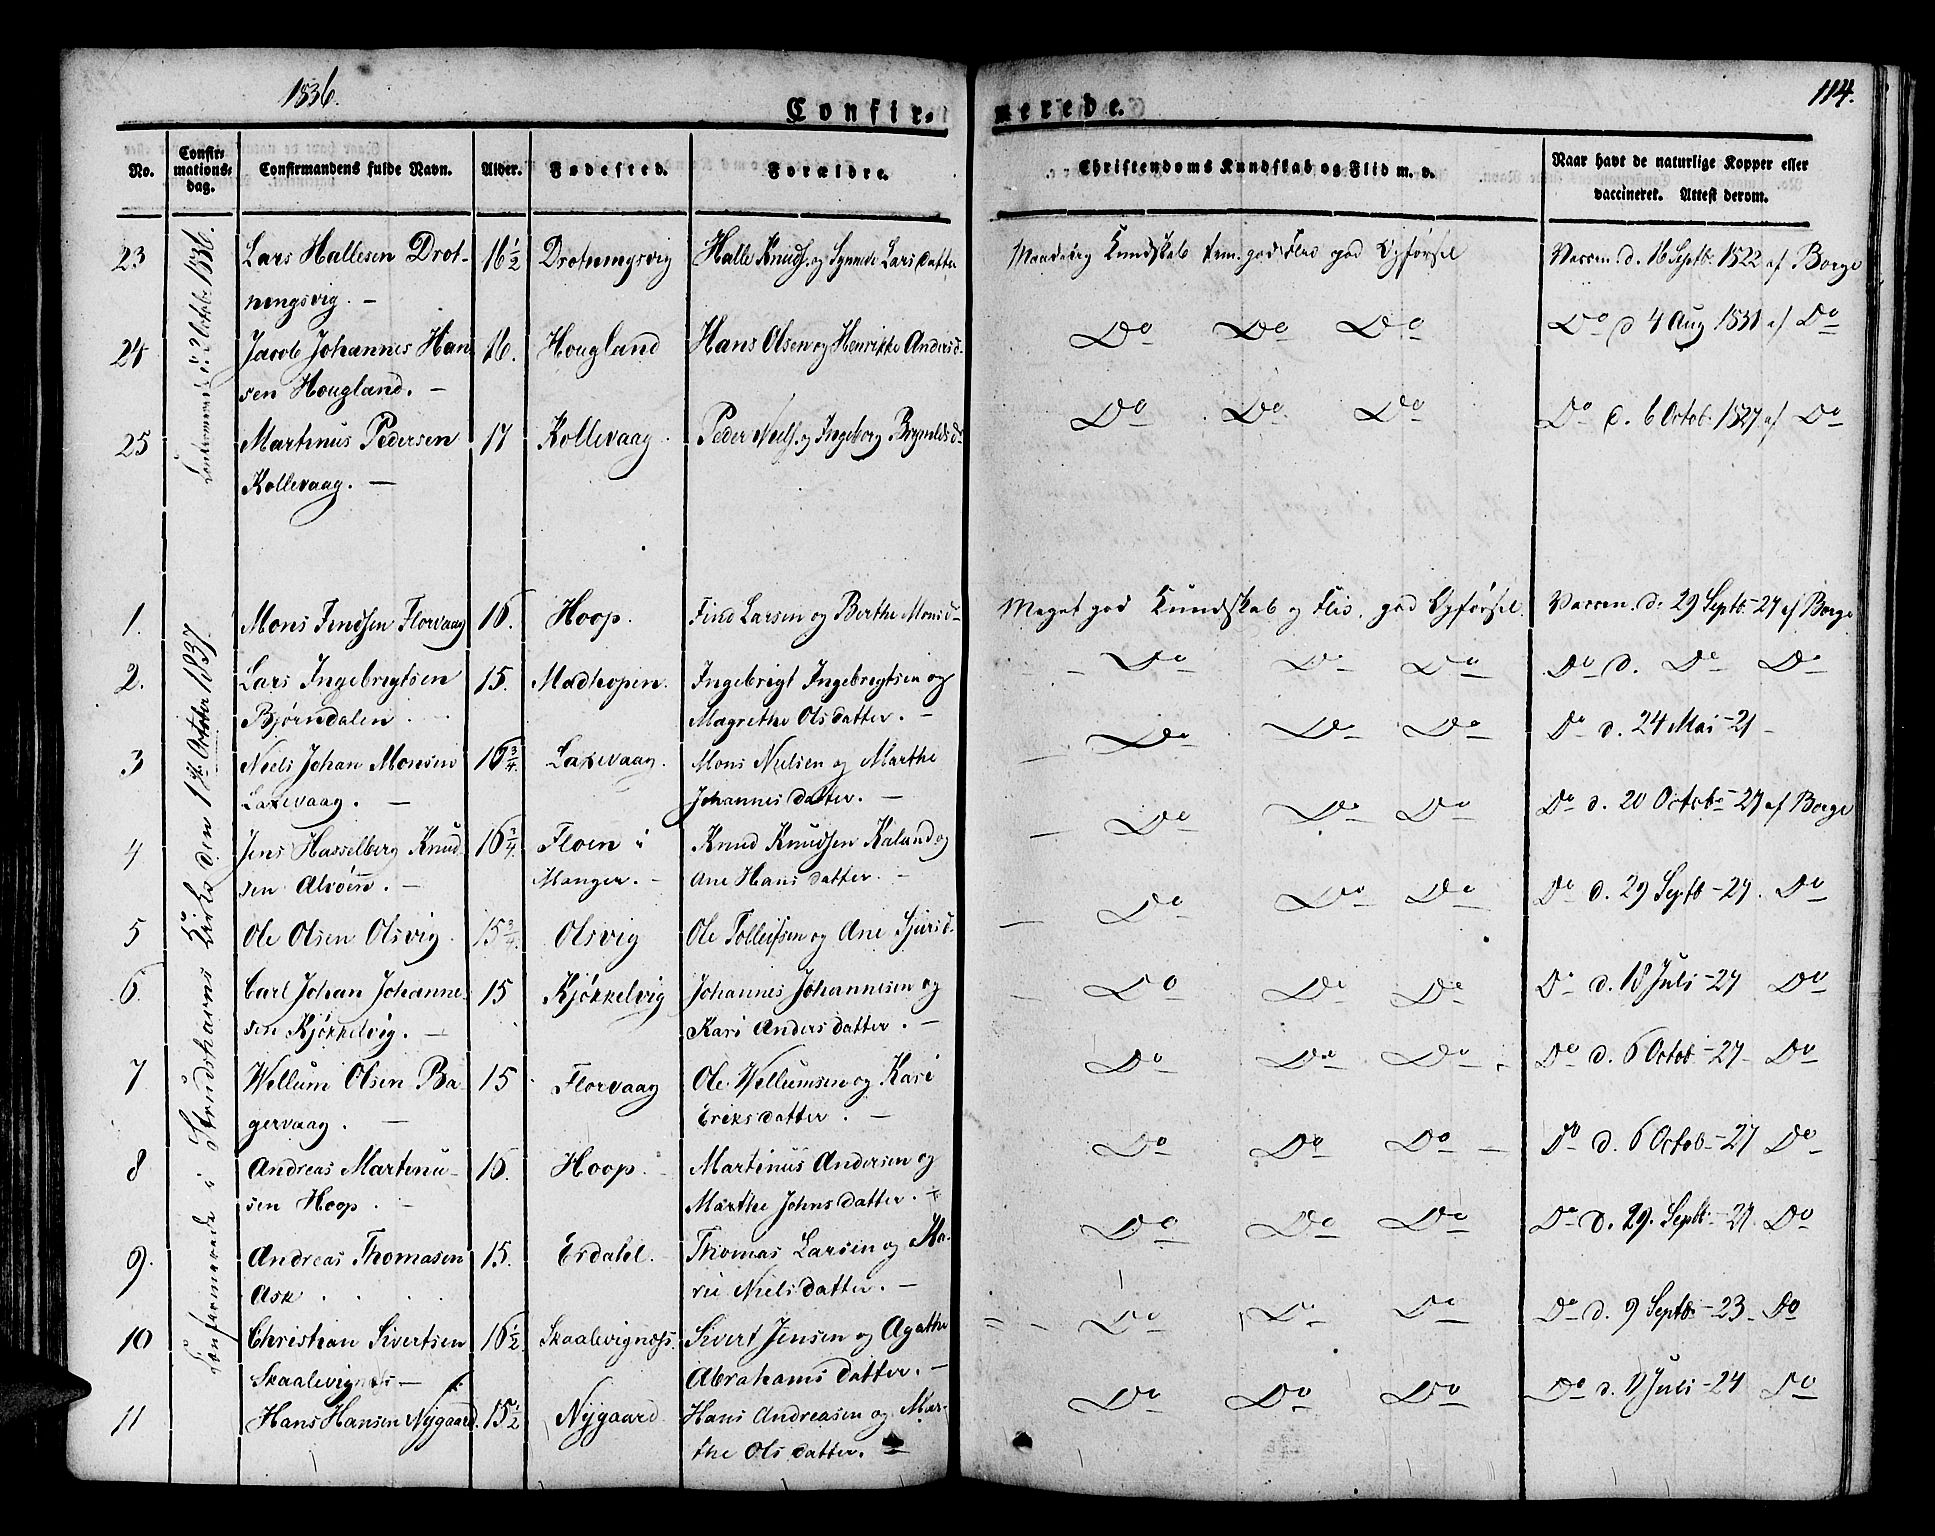 1836.
114.
Confir-
merede.
No.
Confir-
mations-
dag.
Confirmandens fulde Navn.
Alder.
Fødested.
Forældre.
Christendoms Kundskab og Flid m. v.
Naar havt de naturlige Kopper eller
vaccineret. Attest derom.
Confirmerede i Strudshavns Kirke den 1ste October 1837.
23 Lars Hallesen Drot- 16 1/2 Drotningsvig Halle Knuds. og Synneve Lars datter Maadelig Kundskab god Flid god Opførsel Vaccin. d. 16 Septb. 1822 af Borge
ningsvig. –
24 Jacob Johannes Han 16. Hougland Hans Olsen og Henrikke Andersd. Do Do Do Do d 4 Aug 1831 af Do
sen Hougland. –
25 Martinus Pedersen 17 Kollevaag. Peder Niels. og Ingeborg Brynildsd. Do Do Do Do d. 6 Octob. 1827 af Do
Kollevaag. –
1. Mons Findsen Florvaag 16. Hoop. Find Larsen og Berthe Monsd– Meget god Kundskab og Flid. god Opførsel. Vaccin. d. 29 Septb.– 27 af Borge
2. Lars Ingebregtsen 15. Madhopen. Ingebrigt Ingebregtsen og Do Do Do Do d. Do Do
Bjørndalen Magrethe Olsdatter. –
3 Niels Johan Monsen 16 3/4. Laxevaag. Mons Nielsen og Marthe Do Do Do Do d. 24 Mai – 21 –
Laxevaag. – Johannesdatter. –
4 Jens Hasselberg Knud- 16 3/4. Floen i Knud Knudsen Kaland og Do Do Do Do d. 20 Octob – 27 af Borge
sen Alvøen. – Manger. – Ane Hansdatter. –
5 Ole Olsen Olsvig. 15 3/4. Olsvig Ole Tollefsen og Ane Sjursd. Do Do Do Do d. 29 Septb – 27. Do
6 Carl Johan Johanne- 15 Kjøkkelvig Johannes Johannesen og Do Do Do Do d. 18 Juli – 27 Do
sen Kjøkkelvig. – Kari Andersdatter. –
7 Wellum Olsen Ba- 15 Florvaag Ole Wellumsen og Kari Do Do Do Do d. 6 Octob – 27 – Do
gervaag. – Eriksdatter. –
8 Andreas Martinu- 15. Hoop. Martinus Andersen og Do Do Do Do d. 6 Octob – 27 Do
sen Hoop. Marthe Johnsdatter. –
9. Andreas Thomasen 15. Erdahl. Thomas Larsen og Ma- Do Do Do Do d. 29. Septb. – 27. Do
Ask rie Nielsdatter. –
10 Christian Sivertsen 16 1/2 Skaalevignæs. Sivert Jensen og Agathe Do Do Do Do d. 9 Septb. – 23 – Do
Skaalevignæs – Abrahamsdatter. –
11 Hans Hansen Nygaard. 15 1/2 Nygaard Hans Andreasen og Mar- Do Do Do Do d. Juli – 24 Do
the Olsdatter. –